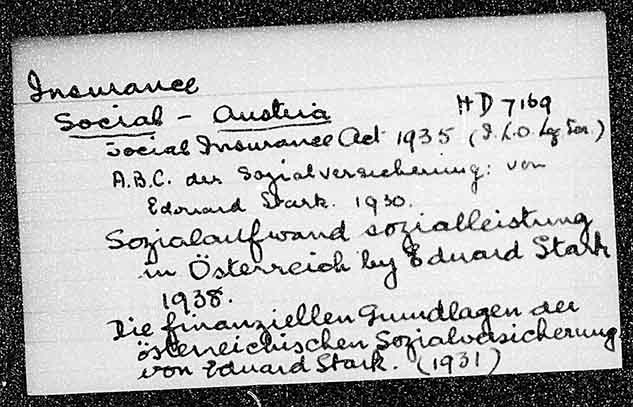 Insurance
Social - Austria HD 7169
Social Insurance Act 1935 (I.L.O. Leg Ser.)
A.B.C. der Sozialversicherung: von
Edouard Stark. 1930.
Sozialaufwand sozialleistung
in Österreich by Eduard Stark
1938.
Die finanziellen Grundlagen der
österreichischen Sozialversicherung
von Eduard Stark. (1931)